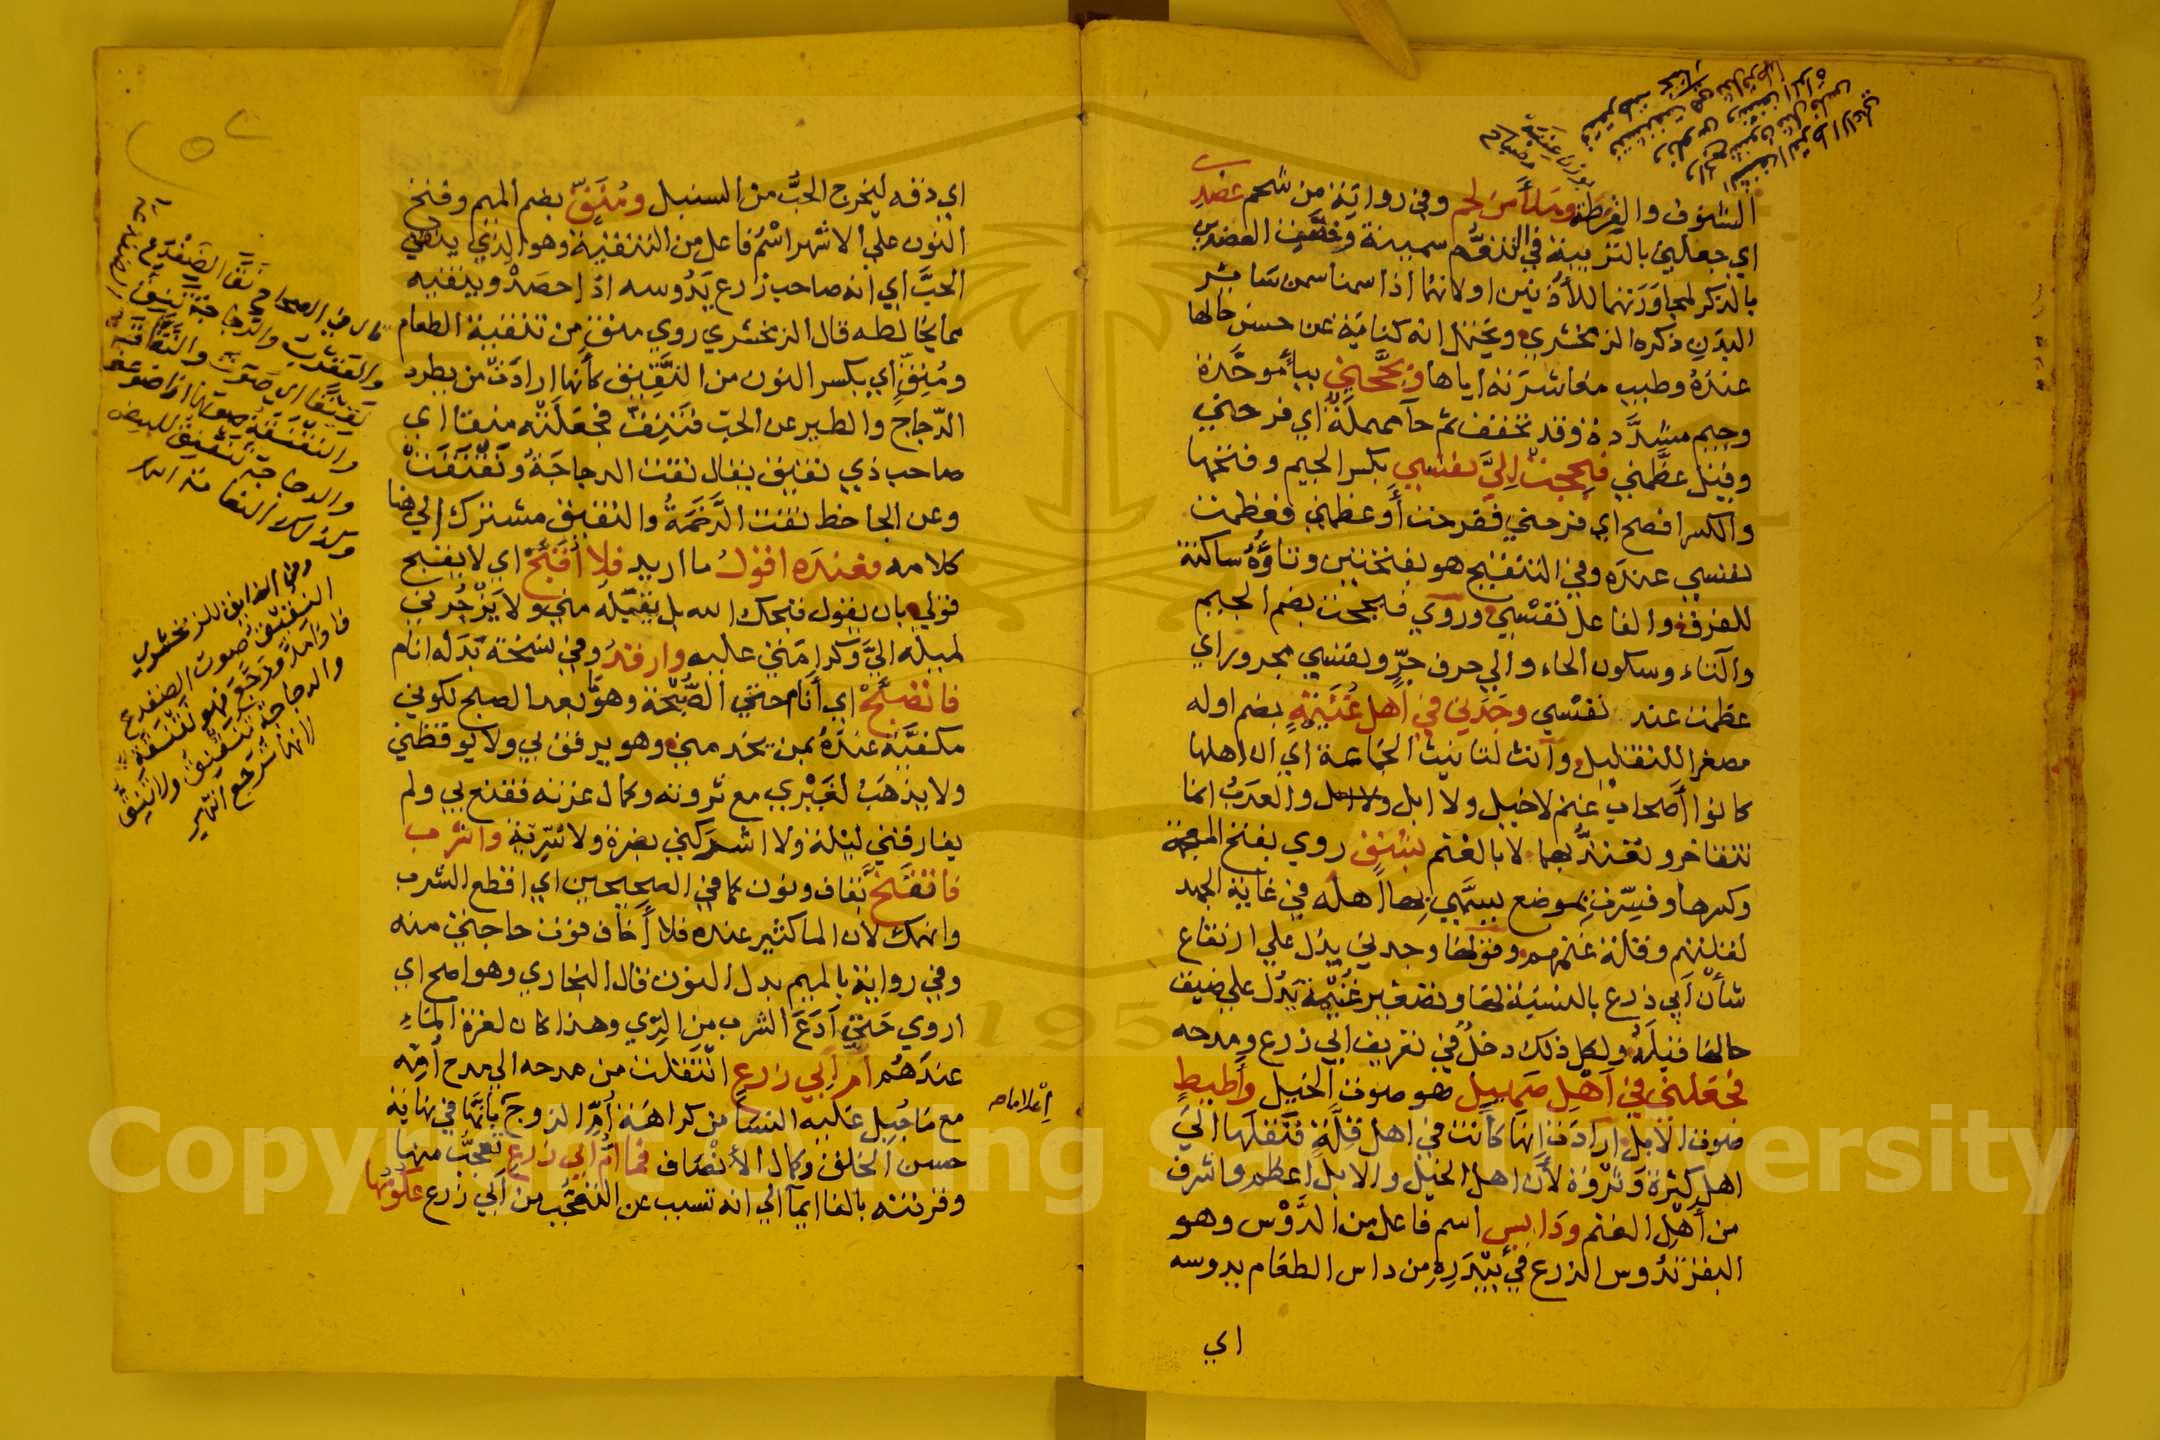 الشنوف والقرطة وملأ من لحم وفي رواية من شحم عضدي
اي جعلني بالتربية في التنعم سمينة وخصت العضدين
بالذكر لمجاورتهما للأذنين او لانهما اذا سمنا سمن سائر
البدن ذكره الزمخشري ويحتمل انه كناية عن حسن حالها
عنده وطيب معاشرته اياها وبجحني ببا موحدة
وجيم مشددة وقد تخفف ثم حا مهملة اي فرحني
وقيل عظمني فبجحت الي نفسي بكسر الجيم وفتحها
والكسر افصح اي فرحني ففرحت أو عظمني فعظمت
نفسي عنده وفي التنقيح هو بفتحتين وتاؤه ساكنة
للفرقة والفاعل نفسي وروي فبجحت بضم الجيم
والتاء وسكون الحاء والي حرف جر ونفسي مجرور اي
عظمت عند نفسي وجدني في اهل غنيمة بضم اوله
مصغرا للتقليل وآنث لتانيث الجماعة اي ان اهلها
كانوا أصحاب غنم لا خيل ولا ابل والعرب انما
تتفاخر وتعتد بهما لا بالغنم بشق روي بفتح المعجمة
وكسرها وفسرت بموضع يسمي بها اهله في غاية الجهد
لقلتهم وقلة غنمهم وقولها وجدني يدل علي ارتفاع
شأن أبي زرع بالنسبة لها وتصغير غنيمة يدل علي ضيق
حالها قبله ولكل ذلك دخل في تعريف ابي زرع ومدحه
فجعلني في اهل صهيل هو صوت الخيل وأطيط
صوت الابل ارادت انها كانت في اهل قلة فنقلها الي
اهل كثرة وثروة لأن اهل الخيل والابل اعظم واشرف
من أهل الغنم ودائس اسم فاعل من الدوس وهو
البقر تدوس الزرع في بيدره من داس الطعام يدوسه
اي
اي دقه ليخرج الحب من السنبل ومنق بضم الميم وفتح
النون علي الاشهر اسم فاعل من التنقية وهو الذي ينقي
الحب اي انه صاحب زرع يدوسه اذا حصد وينقيه
مما يخالطه قال الزمخشري روي منق من تنقية الطعام
ومنق اي بكسر النون من النقيق كأنها ارادت من يطرد
الدجاج والطير عن الحب فتنق فجعلته منقا اي
صاحب ذي نقيق يقال نقت الدجاجة ونقنقت
وعن الجاحظ نقت الرخمة والنقيق مشترك الي هنا
كلامه فعنده اقول ما اريد فلا أقبح اي لا يقبح
قولي بان يقول قبحك الله بل يقبله مني ولا يزجرني
لميله الي وكرامتي عليه وارقد وفي نسخة بدله انام
فاتصبح اي أنام حتي الصبحة وهو بعد الصبح لكوني
مكفية عنده بمن يخدمني وهو يرفق بي ولا يوقظني
ولا يذهب لغيري مع ثروته وكمال عزته فقنع بي ولم
يفارقني ليلة ولا اشركني بضرة ولا سرية واشرب
فاتقنح بقاف ونون كما في الصحيحين اي اقطع الشرب
وانهك لان الما كثير عنده فلا أخاف فوت حاجتي منه
وفي رواية بالميم بدل النون قال البخاري وهو اصح اي
اروي حتي أدع الشرب من الري وهذا كان لعزة الماء
عندهم أم أبي زرع انتقلت من مدحه الي مدح أمه
مع ما جبل عليه النسا من كراهة أم الزوج بانها في نهاية
إعلاما
حسن الخلق وكمال الأنصاف فما أم أبي زرع تعجب منها
وقرنته بالفا ايما الي انه تسبب عن التعجب من أبي زرع عكومها
قال في الصحاح نق الضفدع
والعقرب والدجاجة تنق
نقيقا اي صوت
وفي الفائق للزمخشري
النقيق صوت الضفدع
فاذا مد ورجع فهو نقنقة
والدجاجة تنقنق ولا تنق
لانها ترجع انتهى